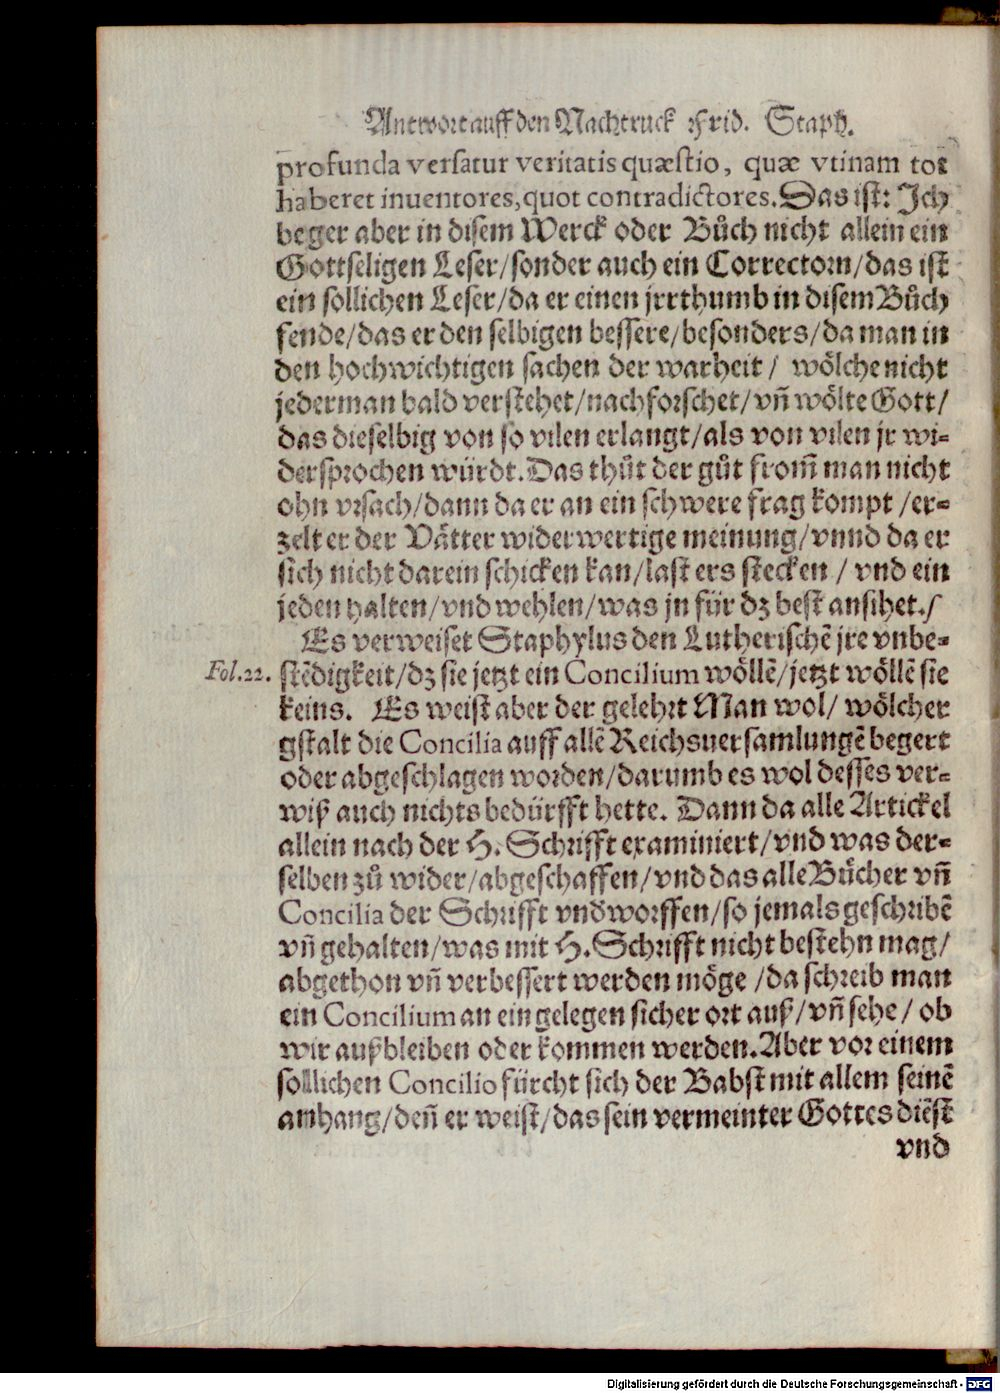 Antwort auff den Nachtruck Frid. Staph.
profunda versatur veritatis quæstio, quæ vtinam tot
haberet inuentores, quot contradictores. Das ist: Ich
beger aber in disem Werck oder Bůch nicht allein ein
Gottseligen Leser/sonder auch ein Correctorn/das ist
ein sollichen Leser/da er einen jrrthumb in disem Bůch
fende/das er den selbigen bessere/besonders/da man in
den hochwichtigen sachen der warheit/ wölche nicht
jederman bald verstehet/nachforschet/vñ wölte Gott/
das dieselbig von so vilen erlangt/als von vilen jr wi-
dersprochen würdt. Das thůt der gůt from̃ man nicht
ohn vrsach/dann da er an ein schwere frag kompt/er-
zelt er der Vätter widerwertige meinung/vnnd da er
sich nicht darein schicken kan/last ers stecken/ vnd ein
jeden halten/vnd wehlen/was jn für dz best ansihet./
Es verweiset Staphylus den Lutherischẽ jre vnbe-
Fol.22. stẽdigkeit/dz sie jetzt ein Concilium wöllẽ/jetzt wöllẽ sie
keins. Es weist aber der gelehrt Man wol/ wölcher
gstalt die Concilia auff allẽ Reichsuersamlungẽ begert
oder abgeschlagen worden/darumb es wol desses ver-
wiß auch nichts bedürfft hette. Dann da alle Artickel
allein nach der H. Schrifft examiniert/vnd was der-
selben zů wider/abgeschaffen/vnd das alle Bücher vñ
Concilia der Schrifft vndworffen/so jemals geschribẽ
vñ gehalten/was mit H. Schrifft nicht bestehn mag/
abgethon vñ verbessert werden möge/da schreib man
ein Concilium an ein gelegen sicher ort auß/vñ sehe/ ob
wir außbleiben oder kommen werden. Aber vor einem
sollichen Concilio fürcht sich der Babst mit allem seinẽ
anhang/deñ er weist/das sein vermeinter Gottes diẽst
vnd
Digitalisierung gefördert durch die Deutsche Forschungsgemeinschaft - DFG